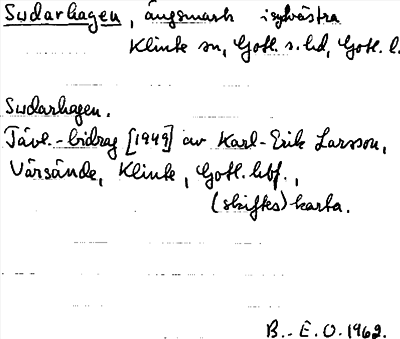 Sudarhagen, ängsmark i sydvästra
Klinte sn, Gotl. s. hd, Gotl. l.
Sudarhagen.
Tävl.-bidrag [1949] av Karl-Erik Larsson,
Värsände, Klinte, Gotl. hbf.,
(skiftes)karta.
B.-E.O. 1962.